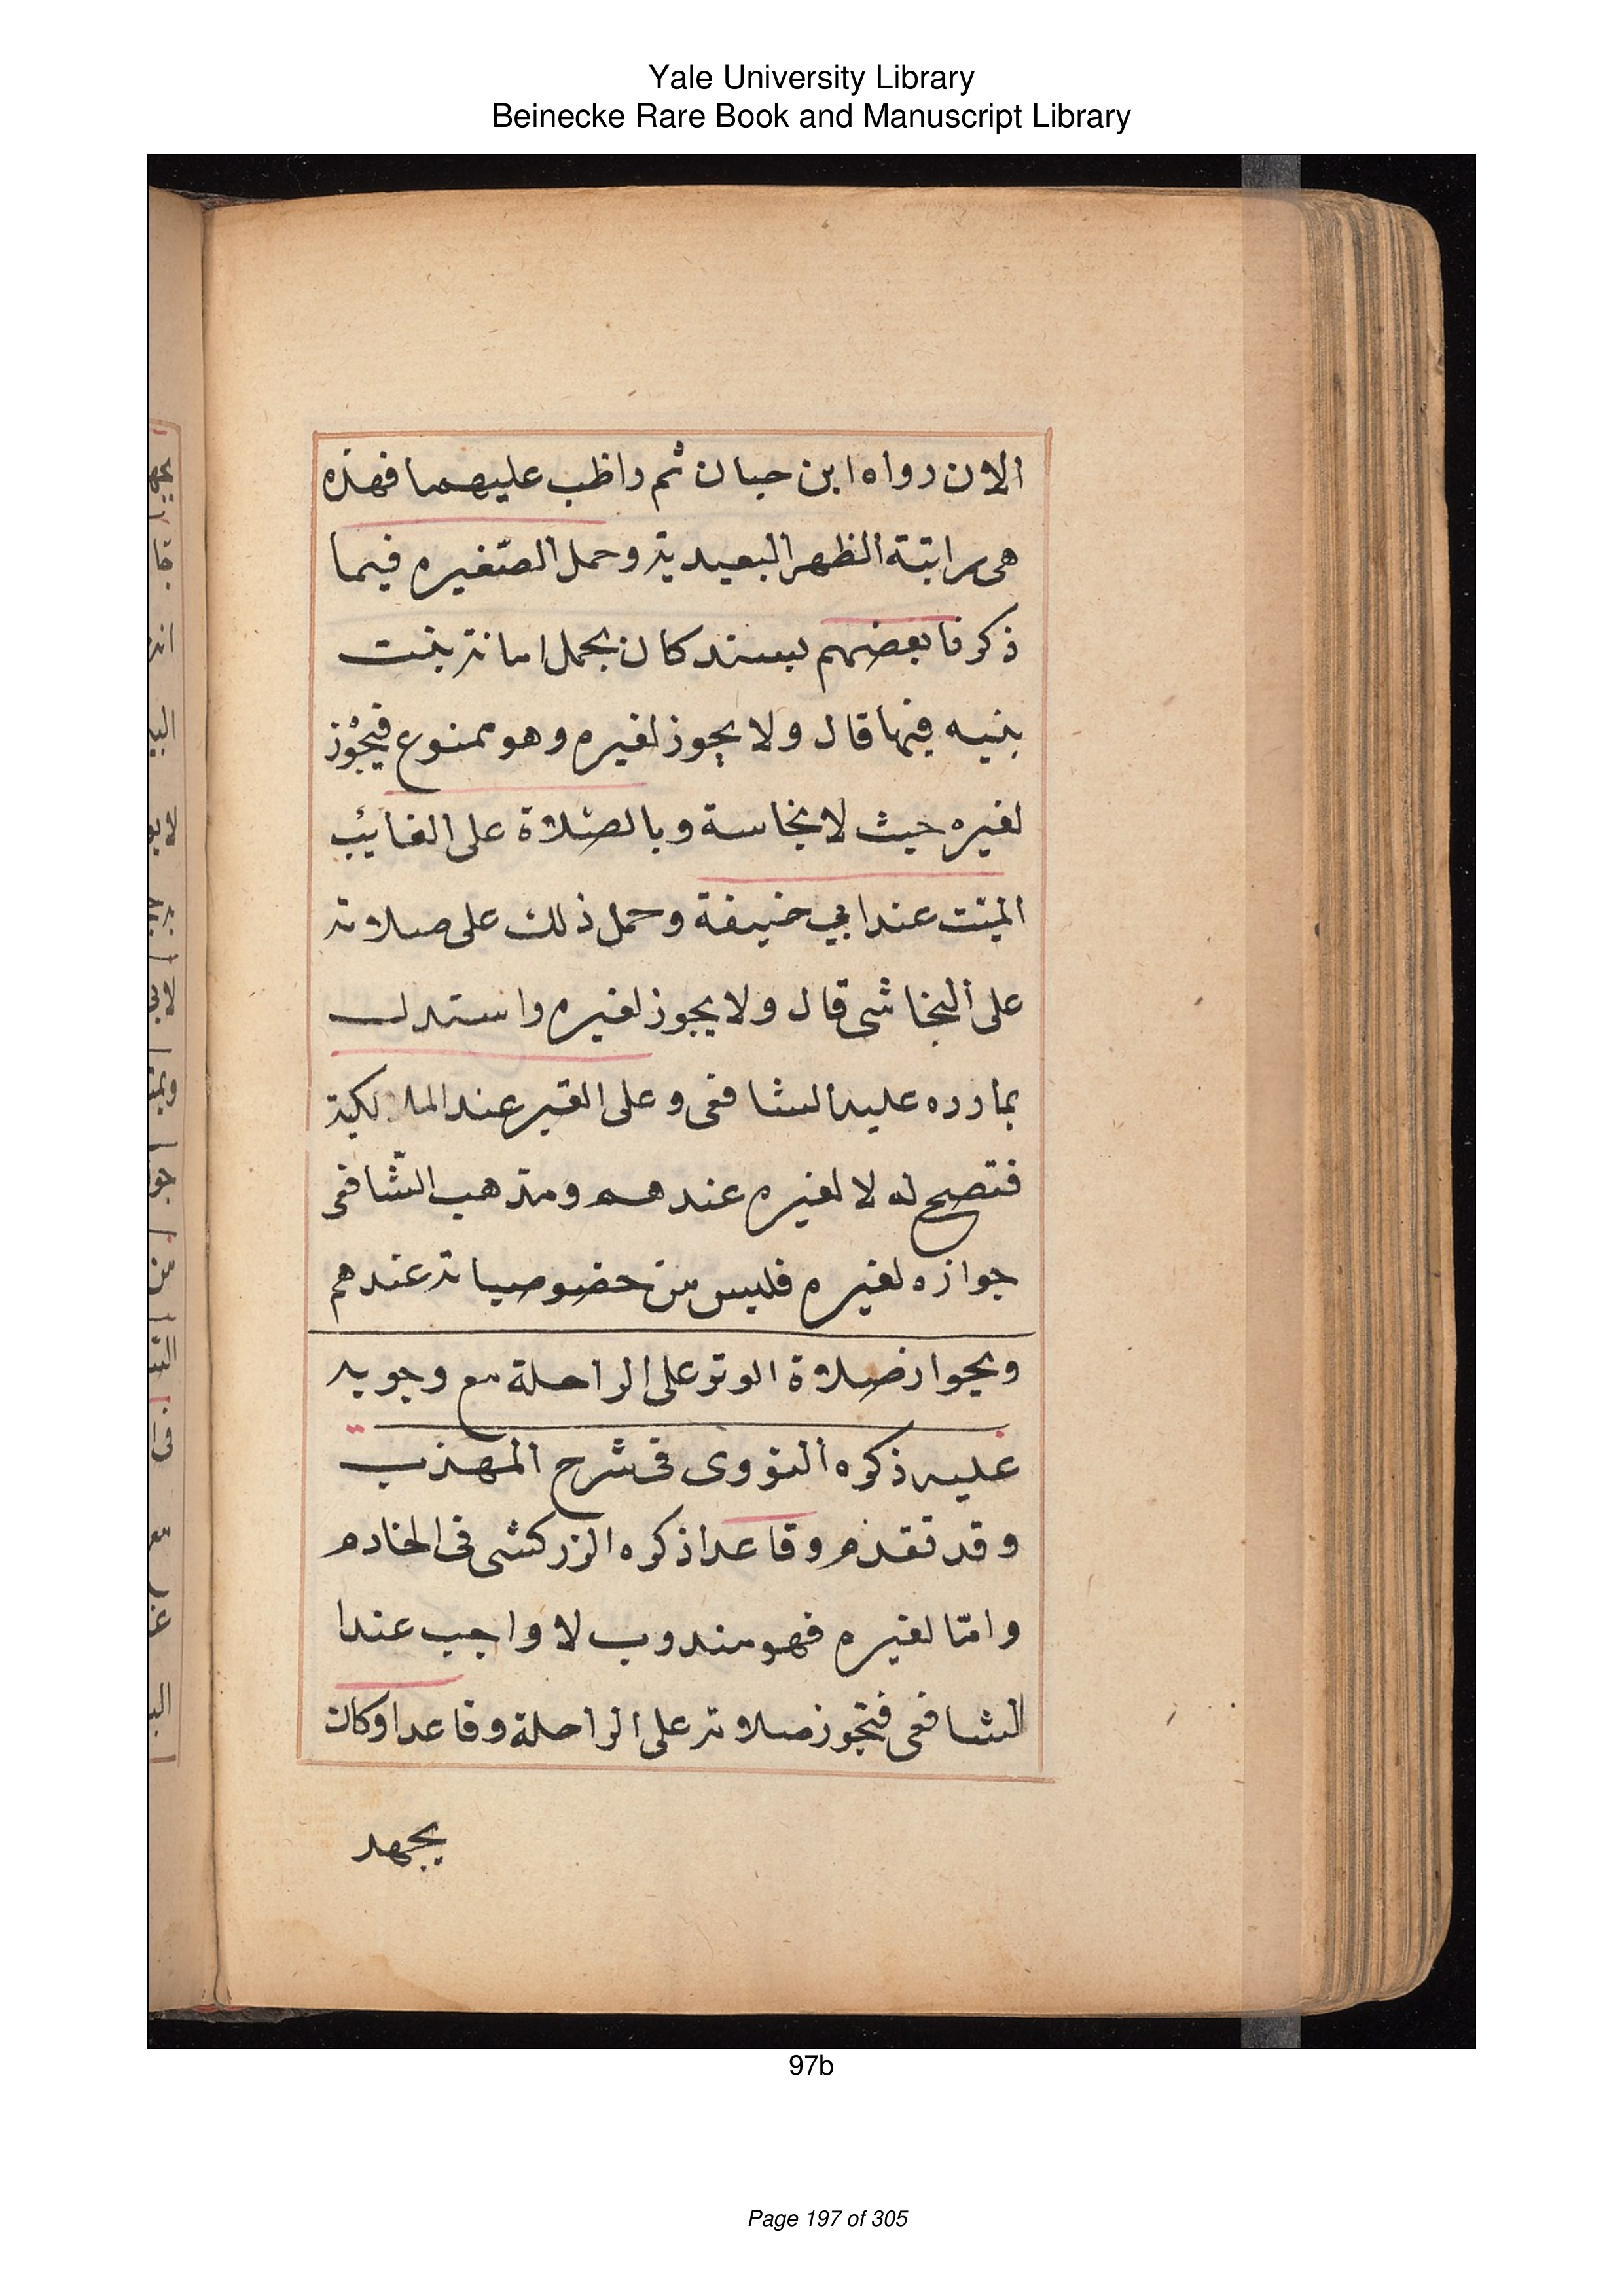 Yale University Library
Beinecke Rare Book and Manuscript Library
الان رواه ابن حبان ثم واظب عليهما فهذه
هى راتبة الظهر البعيدية وحمل الصّغيره فيما
ذكره بعضهم بسنده كان يحمل امانة بنت
بنيه فيها قال ولا يجوز لغيره وهو ممنوع فيجوز
لغيره حيث لا نجاسة وبالصّلاة على الغايئب
الميّت عند ابي حنيفة وحمل ذلك على صلاته
على النجاشى قال ولا يجوز لغيره واستدل
بما رده عليه الشافعى وعلى القبر عند المالكية
فتصح له لا لغيره عندهم ومذهب الشّافعى
جوازه لغيره فليس من خصوصياته عندهم
وبجواز صلاة الوتر على الراحلة مع وجوبه
عليه ذكره النووى فى شرح المهذب
وقد تقدم وقاعدا ذكره الزركشى فى الخادم
وامّا لغيره فهو مندوب لا واجب عندا
الشافعى فتجوز صلاته على الراحلة وقاعدا وكان
يجهد
97b
Page 197 of 305